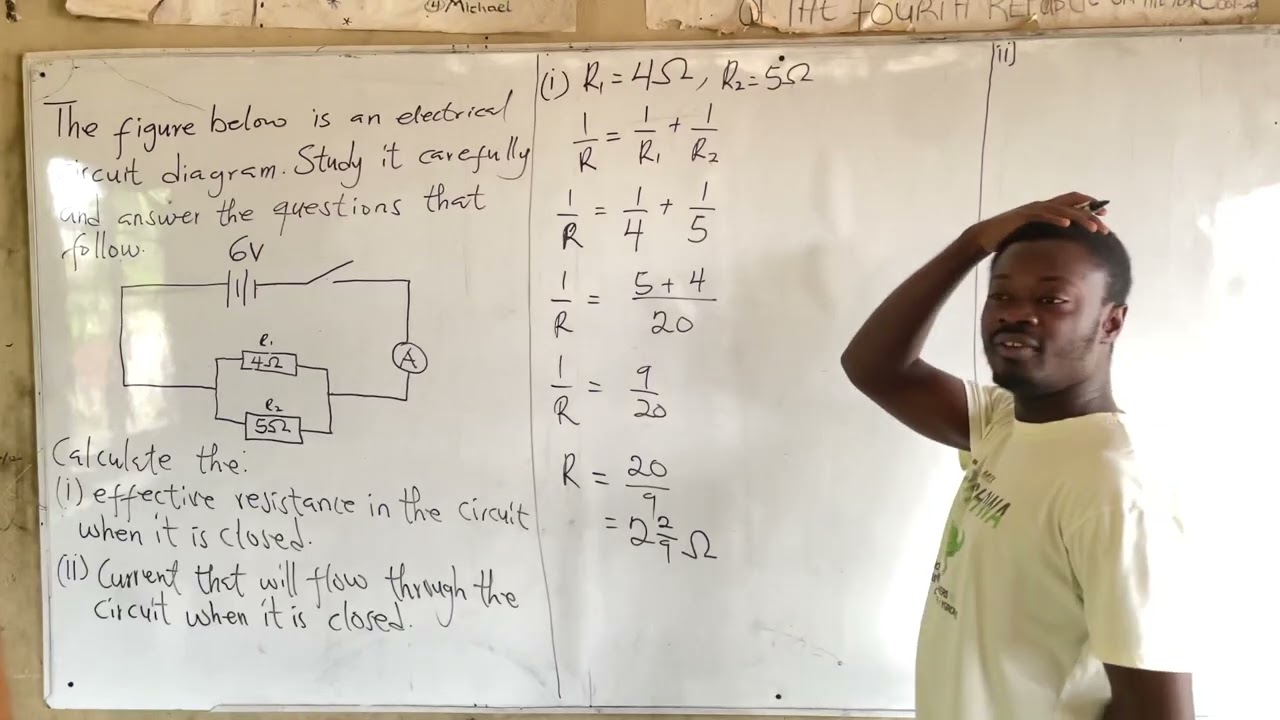 ④ Michael
OF THE FOURTH REPUBLIC
The figure below is an electrical
circuit diagram. Study it carefully
and answer the questions that
follow.
6V
A
R₁
4Ω
R₂
5Ω
Calculate the:
(i) effective resistance in the circuit
when it is closed.
(ii) Current that will flow through the
circuit when it is closed.
(i) R₁ = 4Ω, R₂ = 5Ω
1/R = 1/R₁ + 1/R₂
1/R = 1/4 + 1/5
1/R = 5 + 4/20
1/R = 9/20
R = 20/9
= 2 2/9 Ω
ii]